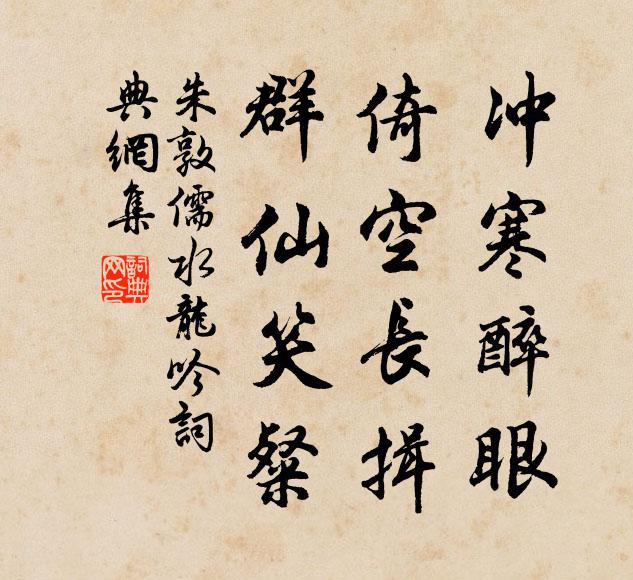 冲寒醉眼
倚空長揖
群仙笑粲
朱敦儒水龍吟詞
典網集
詞典網印